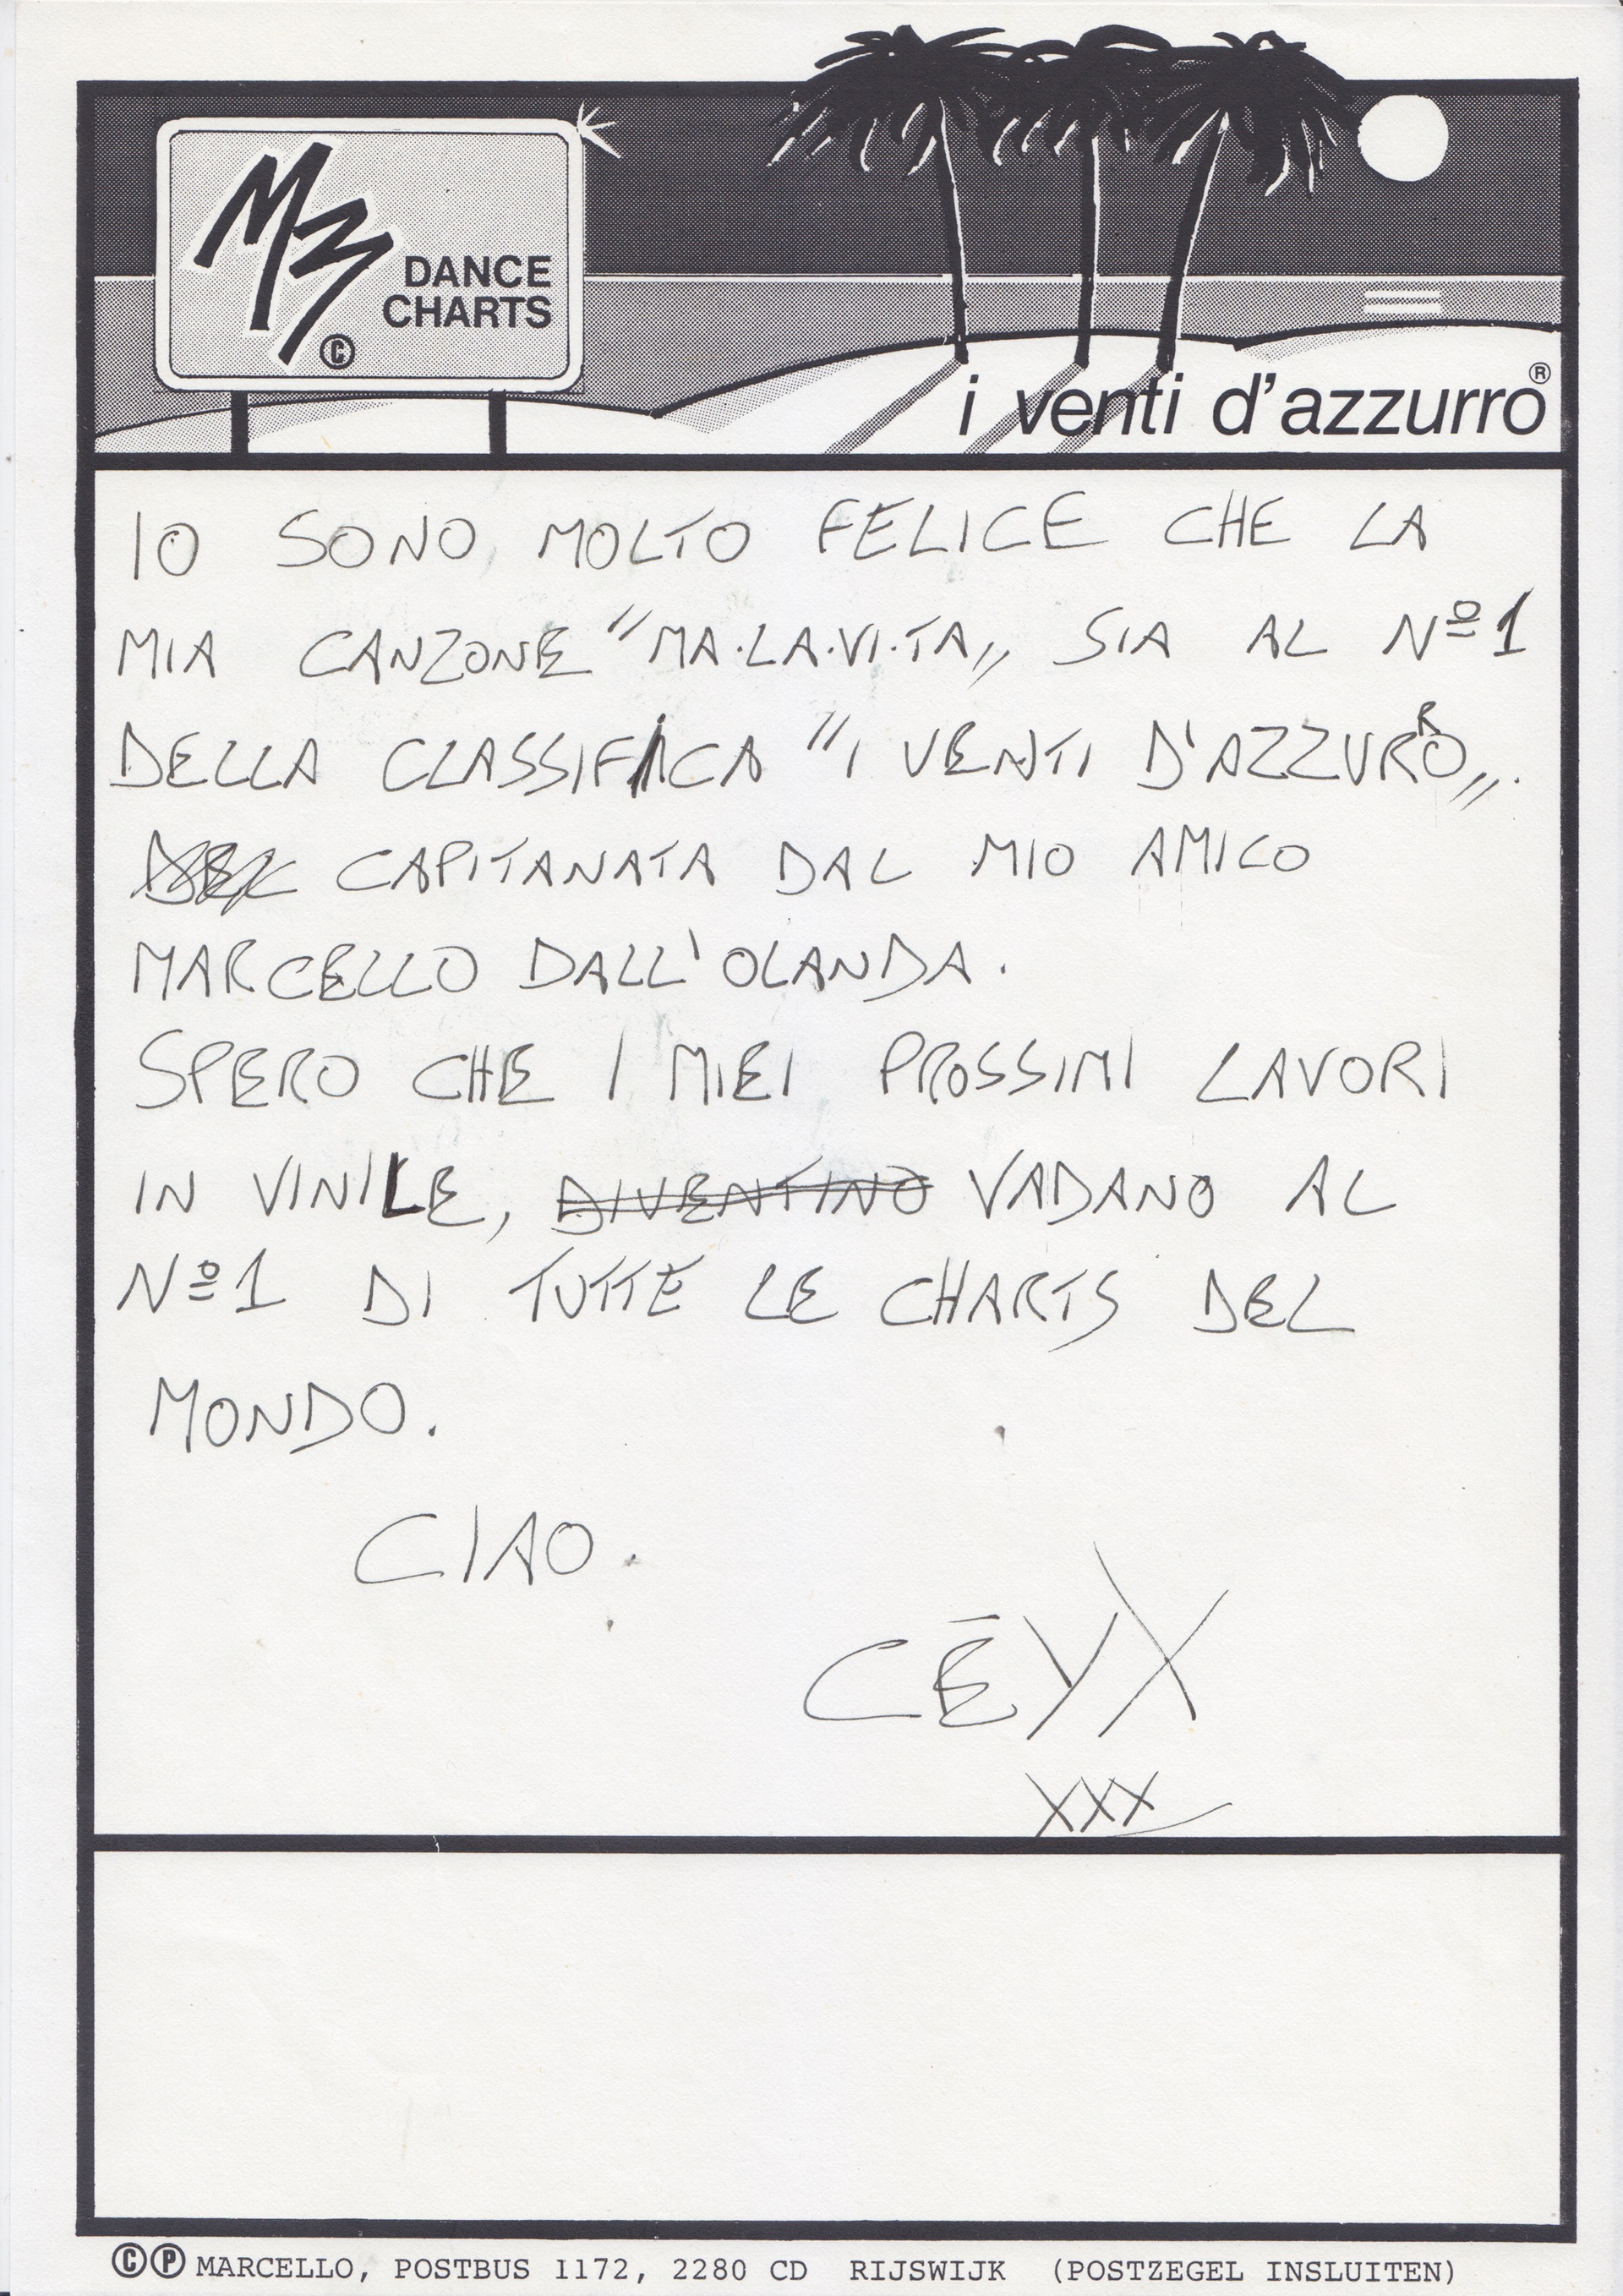 M3
DANCE
CHARTS
©
i venti d'azzurro®
IO SONO MOLTO FELICE CHE LA
MIA CANZONE "MA·LA·VI·TA„ SIA AL Nº1
DELLA CLASSIFICA "I VENTI D'AZZURRO„.
CAPITANATA DAL MIO AMICO
MARCELLO DALL'OLANDA.
SPERO CHE I MIEI PROSSIMI LAVORI
IN VINILE, DIVENTINO VADANO AL
Nº1 DI TUTTE LE CHARTS DEL
MONDO.
CIAO.
CĒYX
XXX
©℗ MARCELLO, POSTBUS 1172, 2280 CD RIJSWIJK (POSTZEGEL INSLUITEN)